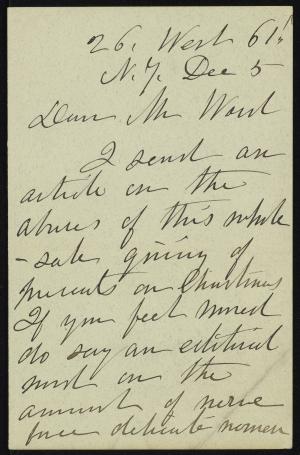 26, West 61st
N.Y. Dec 5
Dear Mr Ward
I send an
article on the
abuses of this whole
-sale giving of
presents on Christmas
If you feel moved
do say an editorial
word on the
amount of nerve
force delicate women